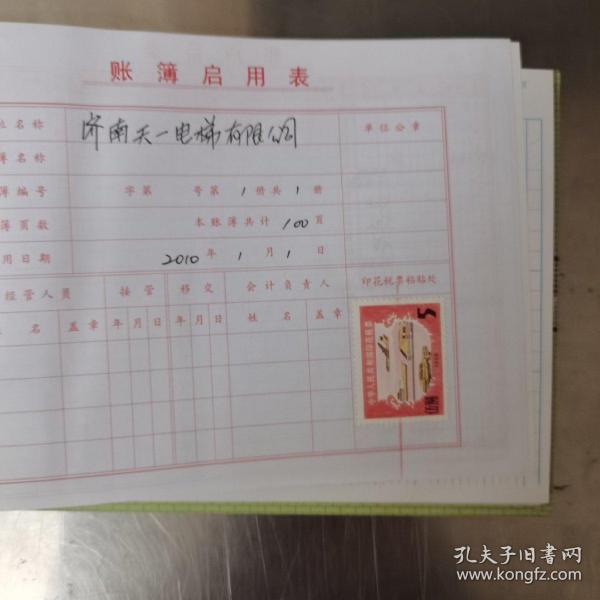 账簿启用表
位名称 济南天一电梯有限公司 单位公章
簿名称
簿编号 字第 号第 1 册共 1 册
簿页数 本账簿共计 100 页
用日期 2010 年 1 月 1 日
经管人员 接管 移交 会计负责人 印花税票粘贴处
姓名 盖章 年 月 日 年 月 日 姓名 盖章
5
中华人民共和国印花税票
1988
伍角
孔夫子旧书网
www.kongfz.com